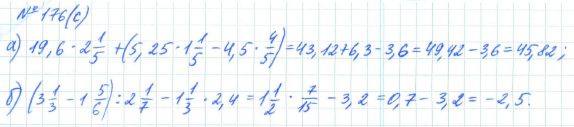 № 176(с)
а) 19,6 · 2 1/5 + (5,25 · 1 1/5 − 4,5 · 4/5) = 43,12 + 6,3 − 3,6 = 49,42 − 3,6 = 45,82;
б) (3 1/3 − 1 5/6) : 2 1/7 − 1 1/3 · 2,4 = 1 1/2 · 7/15 − 3,2 = 0,7 − 3,2 = −2,5.